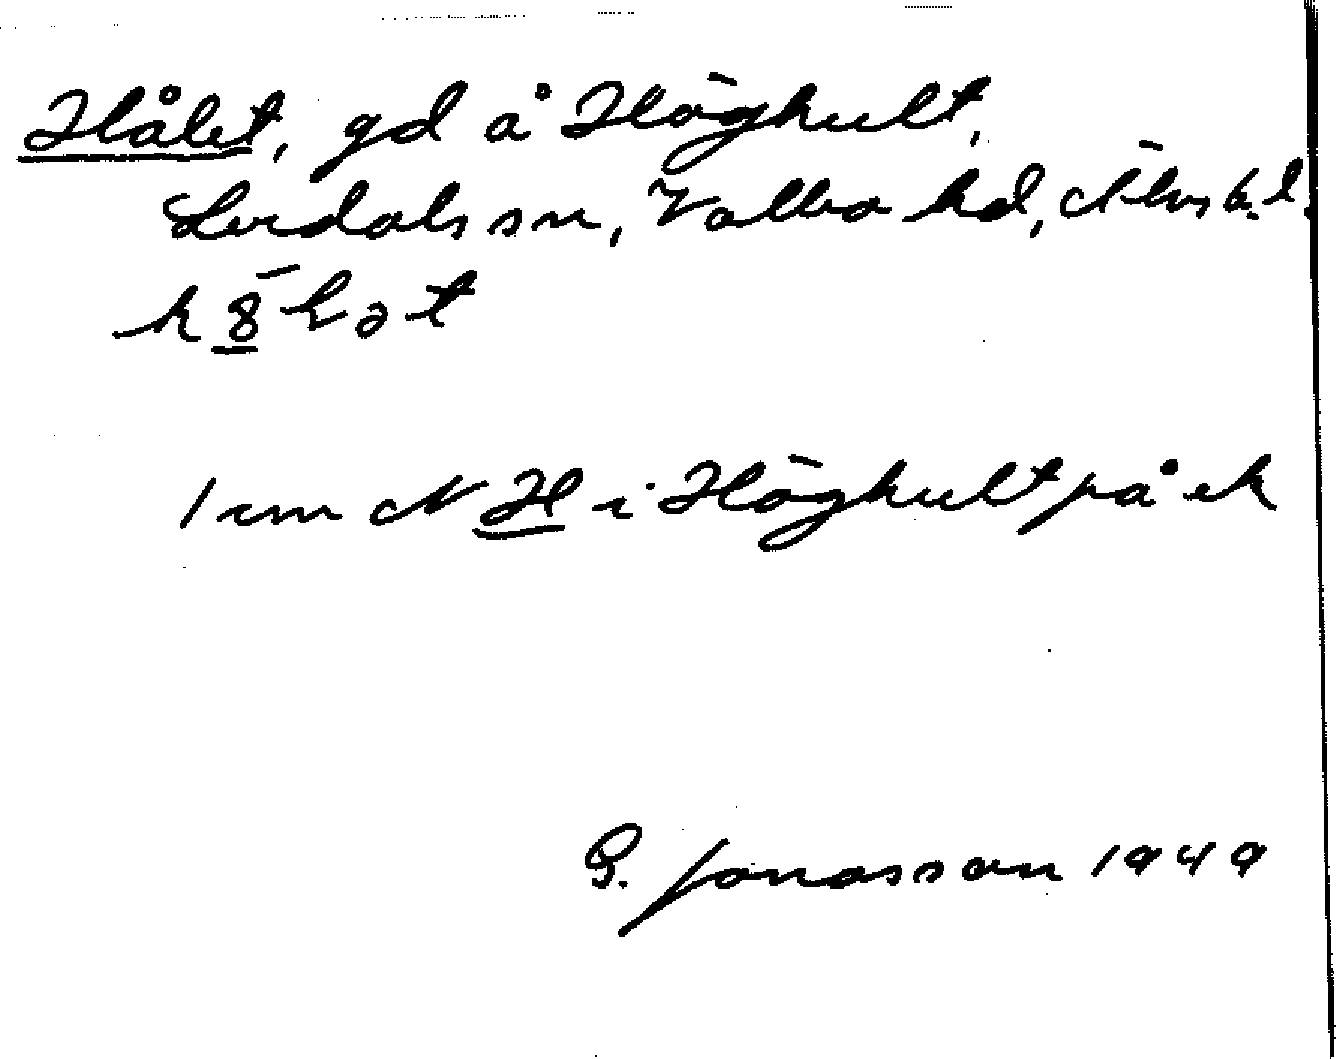 Hålet, gd å Höghult,
Lerdals sn, Valbo hd, Älvsb. l.
h8̄lət
1 km N H i Höghult på ek
G. Jonasson 1949